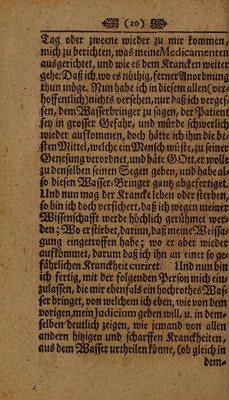 (20)
Tag oder zweene wieder zu mir kommen,
mich zu berichten, was meine Medicamenten
ausgerichtet, und wie es dem Krancken weiter
gehe: Daß ich, wo es nöthig, ferner Anordnung
thun möge. Nun habe ich in diesem allen (ver-
hoffentlich) nichts versehen, nur daß ich verges-
sen, dem Wasserbringer zu sagen, der Patient
sey in grosser Gefahr, und würde schwerlich
wieder aufkommen, doch hätte ich ihm die be-
sten Mittel, welche ein Mensch wüste, zu seiner
Genesung verordnet, und bäte GOtt, er wolle
zu denselben seinen Segen geben, und habe al-
so diesen Wasser-Bringer gantz abgefertiget.
Und nun mag der Krancke leben oder sterben,
so bin ich doch versichert, daß ich wegen meiner
Wissenschafft werde höchlich gerühmet wer-
den; Wo er stirbet, darinn, daß meine Weissa-
gung eingetroffen habe; wo er aber wieder
aufkommet, darum daß ich ihn an einer so ge-
fährlichen Kranckheit curiret. Und nun bin
ich fertig, mit der folgenden Person mich ein-
zulassen, die mir ebenfals ein hochrothes Was-
ser bringet, von welchem ich eben, wie von dem
vorigen, mein Judicium geben will, u. in dem-
selben deutlich zeigen, wie jemand von allen
andern hitzigen und scharffen Kranckheiten,
aus dem Wasser urtheilen könne, (ob gleich in
dem-